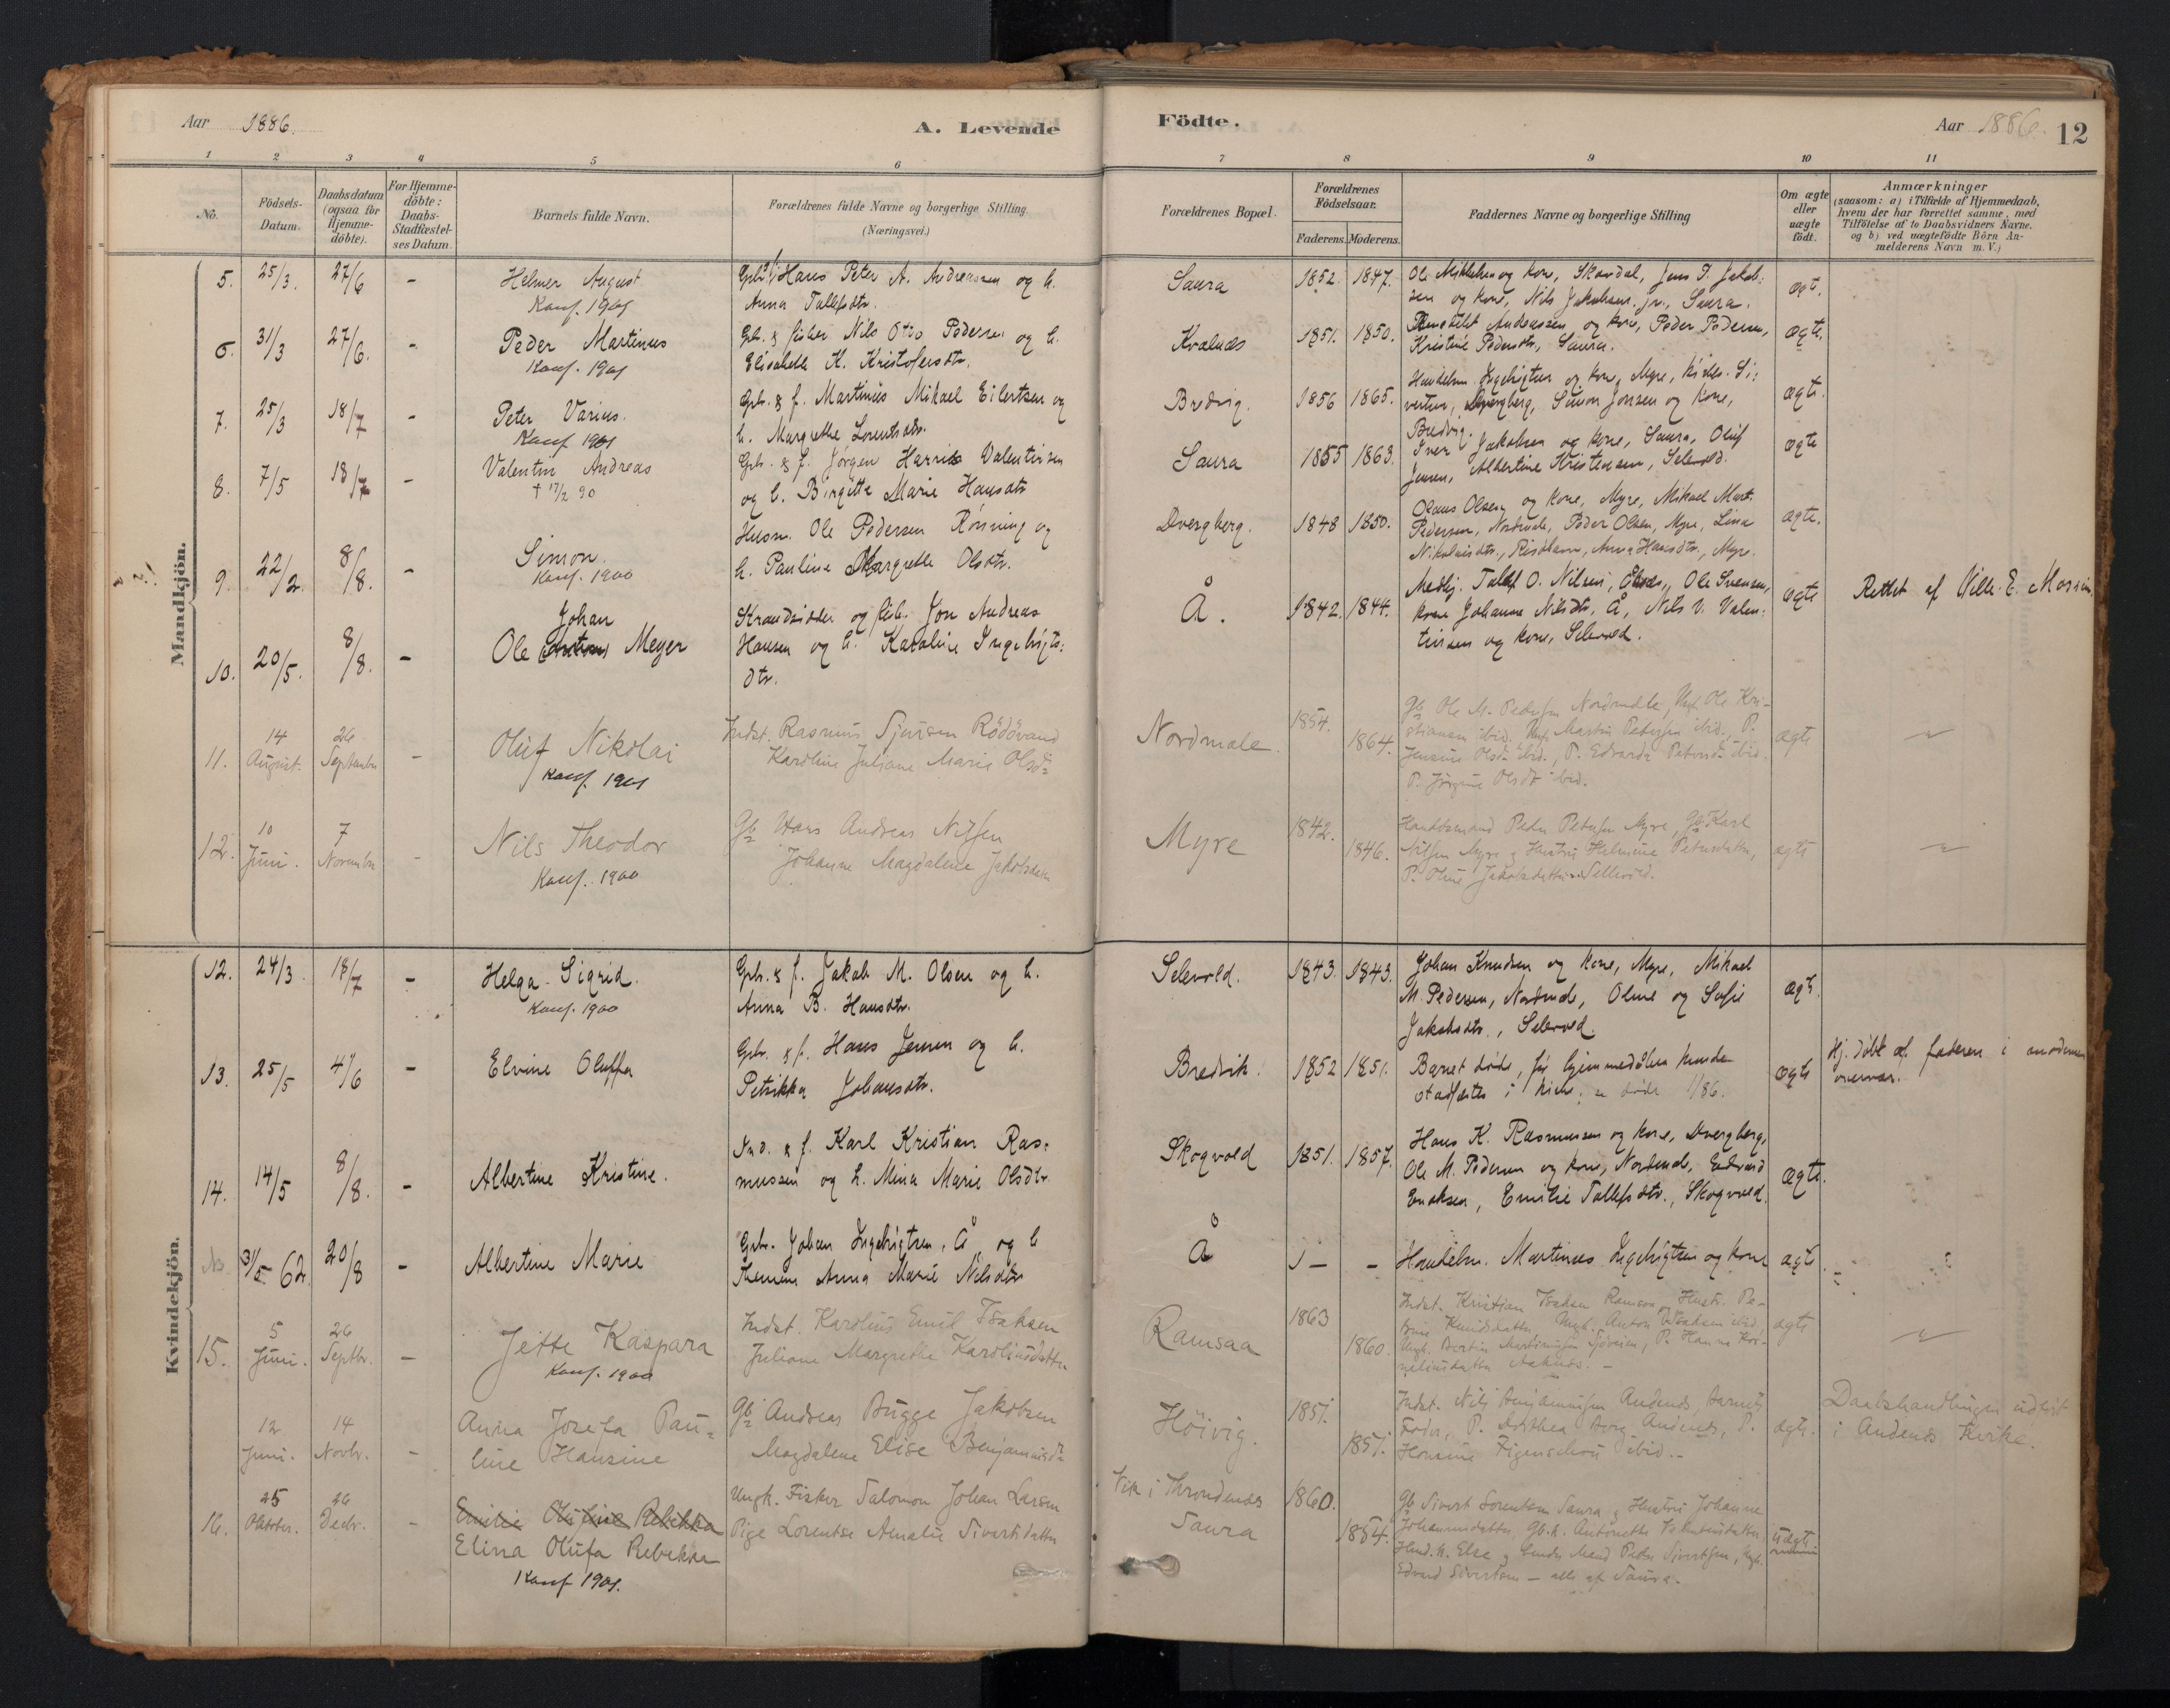 Aar 1886.
A. Levende
Födte.
Aar 1886.
12
1 2 3 4 5 6 7 8 9 10 11
No.
Födsels-
Datum.
Daabsdatum
(ogsaa for
Hjemme-
döbte).
For Hjemme-
döbte:
Daabs-
Stadfæstel-
ses Datum.
Barnets fulde Navn.
Forældrenes fulde Navne og borgerlige Stilling
(Næringsvei.)
Forældrenes Bopæl.
Forældrenes
Födselsaar.
Faderens. Moderens.
Faddernes Navne og borgerlige Stilling
Om ægte
eller
uægte
födt.
Anmærkninger
(saasom: a) i Tilfælde af Hjemmedaab,
hvem der har forrettet samme, med
Tilföielse af to Daabsvidners Navne,
og b) ved uægtefödte Börn An-
melderens Navn m. V.)
Mandkjön.
5. 25/3. 27/6 -
Helmer August
Konf. 1901
Hans Peter A. Andreassen og h.
Anna Tollefsdtr.
Saura
1852. 1847.
Ole Mikkelsen og kone, Skavdal, Jens P. Jakob-
sen og kone, Nils Jakobsen jr., Saura.
ægt.
6. 31/3 27/6. -
Peder Martinus
Konf. 1901
Gb. & fisker Nils Otto Pedersen og h.
Elisabeth K. Kristofersdtr.
Kvalnæs
1851. 1850.
Andreassen og kone, Peder Pedersen,
Kristine Pedersdtr., Saura.
ægte.
7. 25/3 18/7 -
Peter Varius.
Konf 1901
Grb. & f. Martinus Mikael Eilertsen og
h. Margrethe Lorentsdtr.
Bredvig.
1856 1865.
Handelsm. Ingebrigtsen og kone, Myre, Si-
vertsen, Dvergberg, Simon Jonsen og kone,
Bredvig.
ægte.
8. 7/5 18/7 -
Valentin Andreas
† 17/2 90
Grb. & f. Jörgen Harris Valentinsen
og h. Birgitte Marie Hansdtr
Saura
1855 1863.
Iver Jakobsen og kone, Saura, Oluf
Jensen, Albertine Kristensen, Selevold.
ægte
9. 22/2. 8/8. -
Simon.
Konf. 1900
Husm. Ole Pedersen Rönning og
h. Pauline Margrethe Olsdtr.
Dvergberg.
1848 1850.
Olaus Olsen og kone, Myre, Mikael Mart.
Pedersen, Nordmele, Peder Olsen, Myre, Lina
Nikolaisdtr., Risöhavn, Anna Hansdtr., Myre.
ægte.
10. 20/5. 8/8. -
Johan
Ole Meyer
Strandsidder og fisk. Jon Andreas
Hansen og h. Karoline Ingebrigts-
dtr.
Å.
1842. 1844.
Medhj. Tollef O. Nilsen, Ole Svensen,
kone Johanna Nilsdtr, Å, Nils V. Valen-
tinsen og kone, Selevold.
ægte
Rettet af Ville. E.
11. 14 August. 26 September -
Oluf Nikolai
Konf. 1901
Indst. Rasmus Sjursen Rödövand
Karoline Juliane Marie Olsdr
Nordmele.
1854. 1864.
Gb Ole M. Pedersen Nordmele, Ungk. Ole Kri-
stiansen ibid. Ungk. Martin Petersen ibid., P.
Jensine Olsdr ibid., P. Edvarda Petersdr ibid.
P. Jörgine Olsdt ibid.
ægte
12. 10 Juni. 7 November -
Nils Theodor
Konf. 1900
Gb Hans Andreas Nilsen
Johanne Magdalene Jakobsdatter
Myre
1842. 1846.
Handelsmand Peder Petersen Myre, Gb Karl
Nilsen Myre & Hustru Helmine Petersdatter,
P. Oline Jakobsdatter Sellevold.
ægte
Kvindekjön.
12. 24/3. 18/7 -
Helga Sigrid.
Konf. 1900
Grb. & f. Jakob M. Olsen og h.
Anna B. Hansdtr.
Selevold.
1843. 1843.
Johan Knudsen og kone, Myre, Mikael
M. Pedersen, Nordmele, Oline og Sofie
Jakobsdtr., Selevold.
ægte.
13. 25/5 4/6 -
Elvine Oluffa
Grb. & f. Hans Jensen og h.
Petrikka Johansdtr.
Bredvik.
1852 1851.
Barnet döde, för hjemmedåben kunde
stadfæstes i kirke.
ægte
Hj. döbt af faderen i moderens
overvær.
14. 14/5 8/8. -
Albertine Kristine.
Ind. & f. Karl Kristian Ras-
mussen og h. Mina Marie Olsdtr.
Skogvold
1851. 1857.
Hans K. Rasmussen og kone, Dvergberg,
Ole M. Pedersen og kone, Nordmele, Edvard
Enoksen, Emilie Tollefsdtr., Skogvold.
ægte.
31/5 62. 20/8 -
Albertine Marie
Grb. Johan Ingebrigtsen, Å, og h
Anna Marie Nilsdtr
Å
- -
Handelsm. Martinus Ingebrigtsen og kone
ægte
15. 5 Juni. 26 Septbr. -
Jette Kaspara
Konf. 1900
Indst. Karolius Emil Isaksen
Juliane Margrethe Karoliusdatter
Ramsaa
1863 1860.
Indst. Kristian Isaksen Ramsaa, Hustr. Pe-
trine Knudsdatter Ungk. Anton Isaksen ibid.
Ungk. Bertin Martinusen, P. Hanna Kor-
neliusdatter
ægte
12 Juni. 14 Novbr. -
Anna Josefa Pau-
line Hansine
Gb Andreas Bugge Jakobsen
Magdalene Elise Benjaminsdr
Höivig.
1851. 1857.
Indst. Nils Benjaminsen Andenes, Barnets
Fader, P. Dorthea Berg Andenes, P.
Hansine Figenschou ibid.
ægte.
Daabshandlingen udfört
i Andenes Kirke.
16. 25 Oktober. 26 Decbr. -
Emilie Olufine Rebekka
Elina Olufa Rebekka
Konf 1901.
Ungk. Fisker Salomon Johan Larsen
Pige Lorentse Amalie Sivertsdatter
Vik i Throndenes
Saura
1860. 1854.
Gb Sivert Lorentsen Saura & Hustru Johanne
Johannesdatter, Gb.k. Antonette Valentinsdatter,
Else Peder Sivertsen, Ungk.
Edvard Sivertsen - alle af Saura.
Uægte